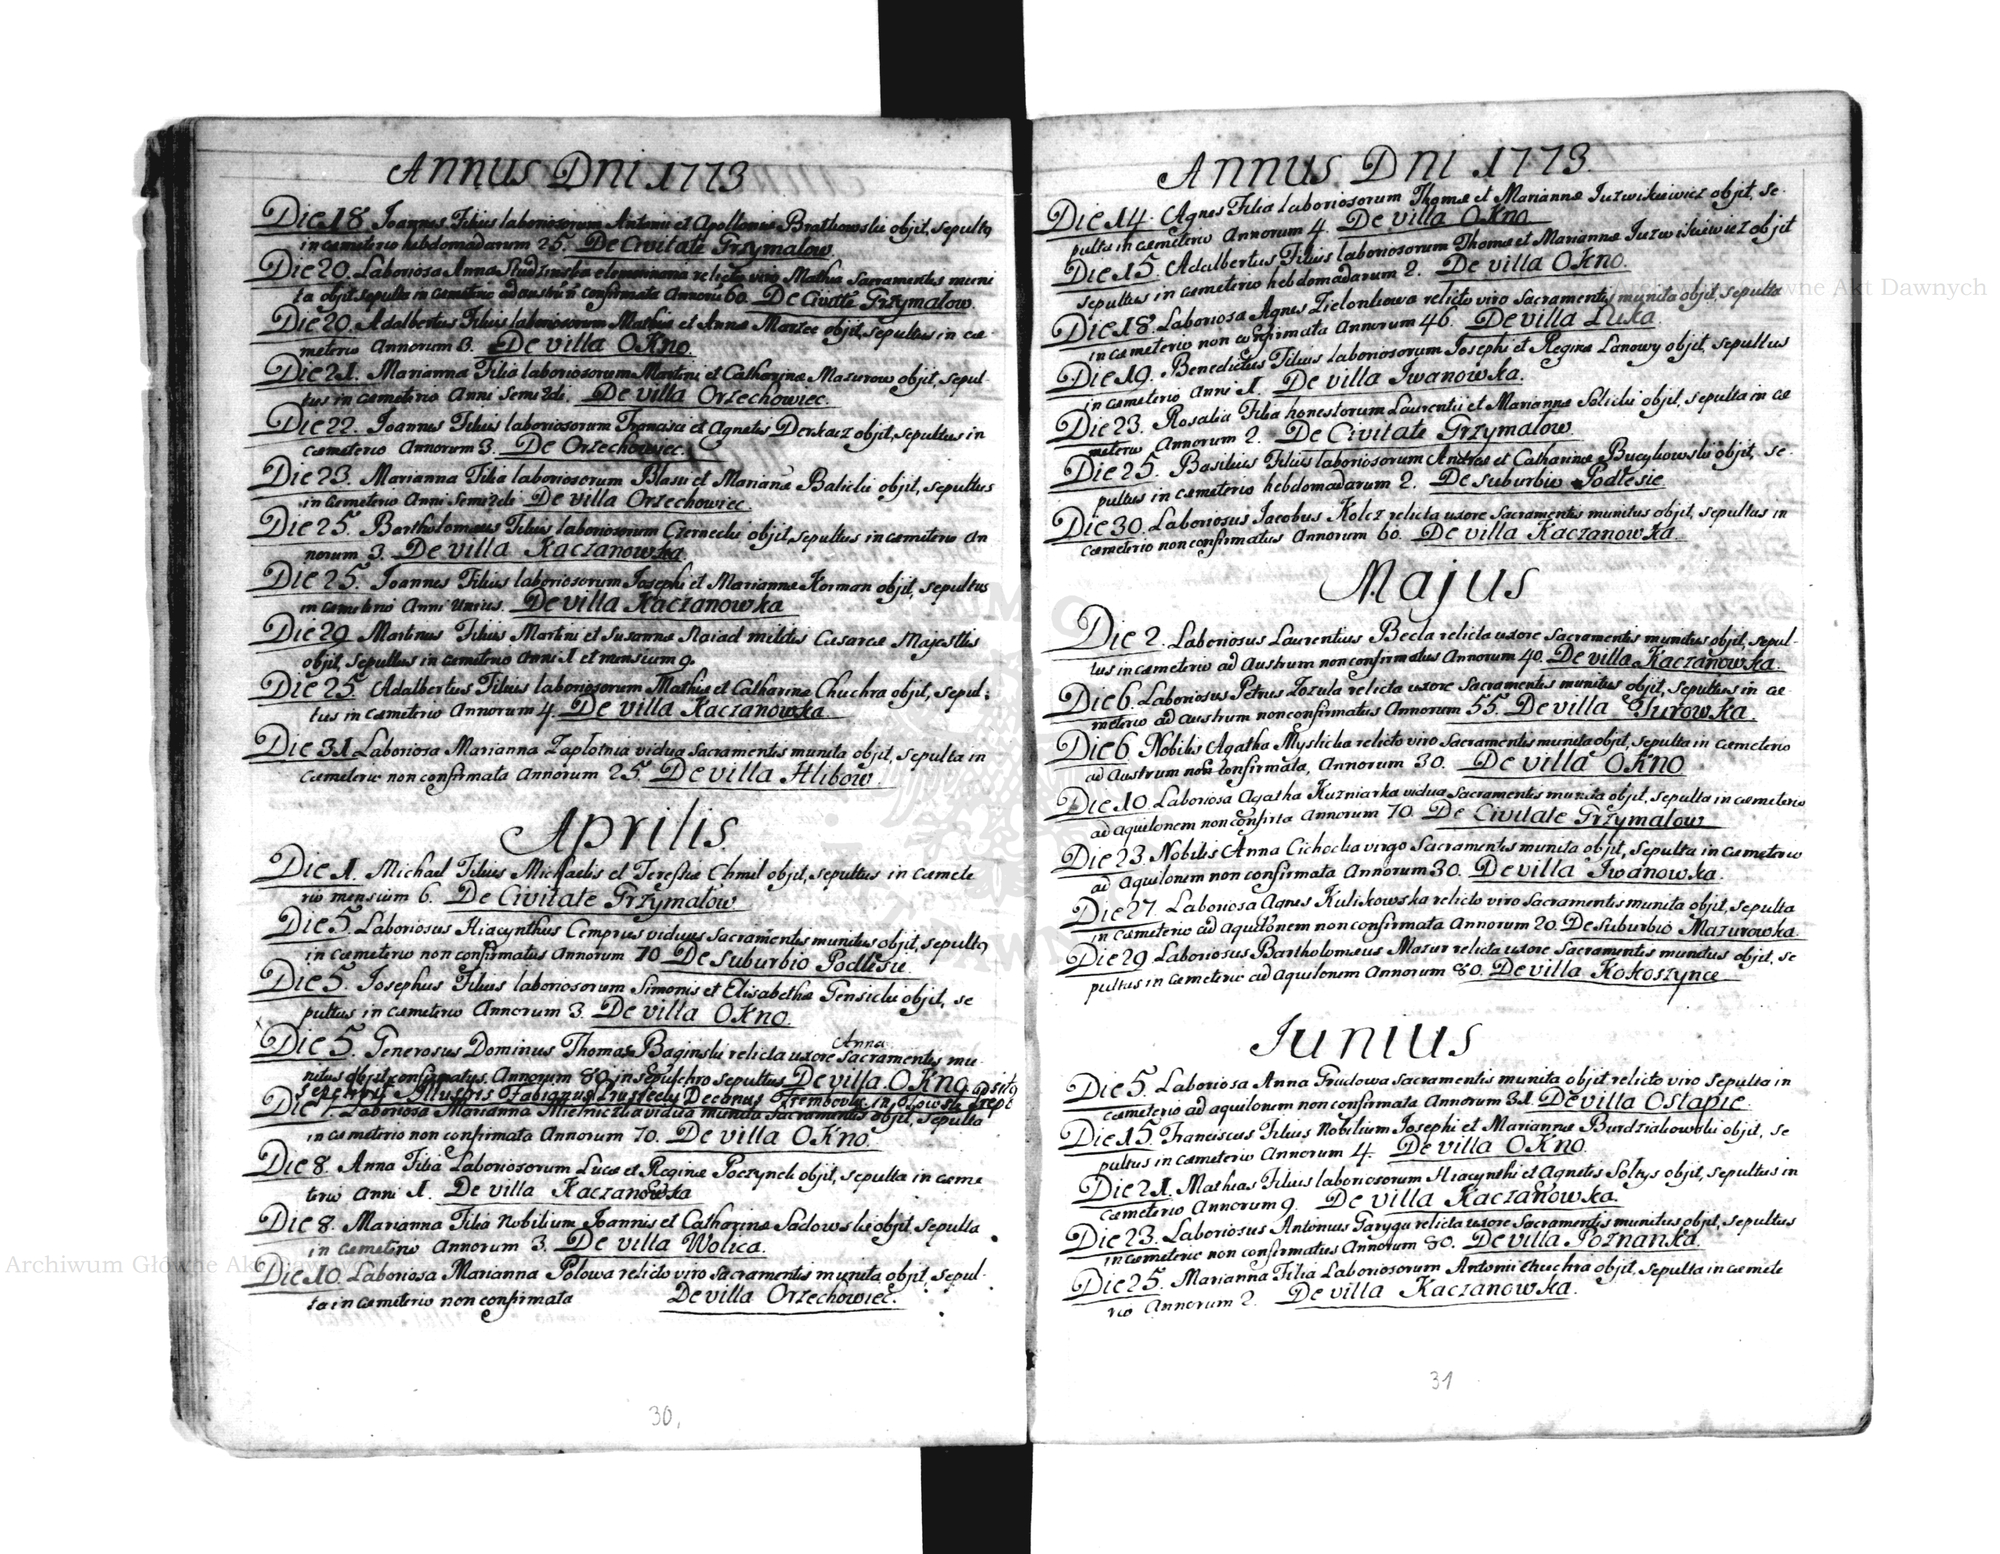 Annus Dni 1773
Die 18. Joannes Filius laboriosorum Antonii et Apolloniæ Bratkowskie objit, sepultq
in cæmeterio hebdomadarum 25. De Civitate Grzymalow
Die 20. Laboriosa Anna Studzinska relicto viro Mathia Sacramentis muni
ta objit sepulta in cæmeterio ad austrū confirmata Annorū 60. De Civate Grzymalow.
Die 20. Adalbertus Filius laboriosorum Mathiæ et Annæ Marzec objit, sepultus in cæ-
meterio Annorum 3. De villa Okno.
Die 21. Marianna Filia laboriosorum Martini et Catharinæ Mazurow objit, sepul-
tus in cæmeterio Anni Semi 2di. De villa Orzechowiec.
Die 22. Joannes Filius laboriosorum Francisci et Agnetis Derkacz objit, sepultus in
cæmeterio Annorum 3. De Orzechowiec.
Die 23. Marianna Filia laboriosorum Blasii et Marianæ Balicki objit, sepultus
in cæmeterio Anni Semi 2di De villa Orzechowiec
Die 25. Bartholomæus Filius laboriosorum Czernecki objit, sepultus in cæmiterio An
norum 3. De villa Kaczanowka
Die 25. Joannes Filius laboriosorum Josephi et Mariannæ Korman objit, sepultus
in cæmeterio Anni Unius. De villa Kaczanowka
Die 29 Martinus Filius Martini et Susannæ militis Cæsareæ Majesttis
objit, sepultus in cæmiterio Anni 1 et mensium 9.
Die 25. Adalbertus Filius laboriosorum Mathiæ et Catharinæ Chuchra objit, sepul:
tus in cæmeterio Annorum 4. De villa Kaczanowka
Die 31 Laboriosa Marianna Zaplotnia vidua Sacramentis munita objit, sepulta in
cæmeterio non confirmata Annorum 25. De villa Hlibow.
Aprilis.
Die 1. Michael Filius Michaelis et Teressiæ Chmil objit, sepultus in cæmete
rio mensium 6. De Civitate Grzymalow
Die 5. Laboriosus Hiacynthus Cemprus viduus Sacramentis munitus objit, sepultq
in cæmeterio non confirmatus Annorum 70 De suburbio Podlesie.
Die 5. Josephus Filius laboriosorum Simonis et Elisabethæ Gensicki objit, se
pultus in cæmeterio Annorum 3. De villa Okno.
Anna
Die 5. Generosus Dominus Thomas Baginski relicta uxore Sacramentis mu-
nitus objit confirmatus. Annorum 80. in sepulchro sepultus De villa Okno.
Illustris Fabianus Decanus Trembovlæ
Die 7. Laboriosa Marianna Mielniczka vidua munita Sacramentis objit, sepulta
in cæmeterio non confirmata Annorum 70. De villa Okno.
Die 8. Anna Filia Laboriosorum Lucæ et Reginæ Poczynek objit, sepulta in cæme
terio Anni 1. De villa Kaczanowka
Die 8. Marianna Filia Nobilium Joannis et Catharinæ Sadowskie objit, sepulta
in cæmeterio Annorum 3. De villa Wolica.
Die 10. Laboriosa Marianna Polowa relicto viro Sacramentis munita objit, sepul-
ta in cæmeterio non confirmata De villa Orzechowiec.
30.
Annus Dni 1773.
Die 14. Agnes Filia laboriosorum Thomæ et Mariannæ Juzwikiewicz objit, se-
pulta in cæmeterio Annorum 4. De villa Okno
Die 15. Adalbertus Filius laboriosorum Thomæ et Mariannæ Juzwikiewicz objit
sepultus in cæmeterio hebdomadarum 2. De villa Okno.
Die 18. Laboriosa Agnes Zielonkowa relicto viro Sacramentis munita objit, sepulta
in cæmeterio non confirmata Annorum 46. De villa Luka.
Die 19. Benedictus Filius laboriosorum Josephi et Reginæ Lanowy objit, sepultus
in cæmeterio Anni 1. De villa Iwanowka.
Die 23. Rosalia Filia honestorum Laurentii et Mariannæ Solicki objit, sepulta in cæ
meterio Annorum 2. De Civitate Grzymalow
Die 25. Basilius Filius laboriosorum Andreæ et Catharinæ Bucykowskie objit, se-
pultus in cæmeterio hebdomadarum 2. De suburbio Podlesie
Die 30. Laboriosus Jacobus Kolcz relicta uxore Sacramentis munitus objit, sepultus in
cæmeterio non confirmatus Annorum 60. De villa Kaczanowka.
Majus
Die 2. Laboriosus Laurentius Becla relicta uxore Sacramentis munitus objit, sepul-
tus in cæmeterio ad Austrum non confirmatus Annorum 40. De villa Kaczanowka.
Die 6. Laboriosus Petrus Zozula relicta uxore Sacramentis munitus objit, sepultus in cæ-
meterio ad austrum non confirmatus Annorum 55. De villa Turowka.
Die 6 Nobilis Agatha Myslicka relicto viro Sacramentis munita objit, sepulta in cæmeterio
ad Austrum non confirmata, Annorum 30. De villa Okno
Die 10. Laboriosa Agatha Kuzniarka vidua Sacramentis munita objit, sepulta in cæmeterio
ad aquilonem non confirta Annorum 70. De Civitate Grzymalow
Die 23. Nobilis Anna Cichocka virgo Sacramentis munita objit, sepulta in cæmeterio
ad Aquilonem non confirmata Annorum 30. De villa Iwanowka.
Die 27. Laboriosa Agnes Kulikowska relicto viro Sacramentis munita objit, sepulta
in cæmeterio ad aquilonem non confirmata Annorum 20. De suburbio Mazurowka.
Die 29 Laboriosus Bartholomæus Mazur relicta uxore Sacramentis munitus objit, se
pultus in cæmeterio ad aquilonem Annorum 80. De villa Kokoszynce
Iunius
Die 5. Laboriosa Anna Grudowa Sacramentis munita objit relicto viro sepulta in
cæmeterio ad aquilonem non confirmata Annorum 31. De villa Ostapie.
Die 15. Franciscus Filius Nobilium Josephi et Mariannæ Burdziakowski objit, se
pultus in cæmeterio Annorum 4. De villa Okno.
Die 21. Mathias Filius laboriosorum Hiacynthi et Agnetis Soltys objit, sepultus in
cæmeterio Annorum 9. De villa Kaczanowka.
Die 23. Laboriosus Antonius Garyga relicta uxore Sacramentis munitus objit, sepultus
in cæmeterio non confirmatus Annorum 80. De villa Poznanka.
Die 25. Marianna Filia Laboriosorum Antonii Chuchra objit, sepulta in cæmete
rio Annorum 2. De villa Kaczanowka.
31
Archiwum Główne Akt Dawnych
Archiwum Główne Akt Dawnych